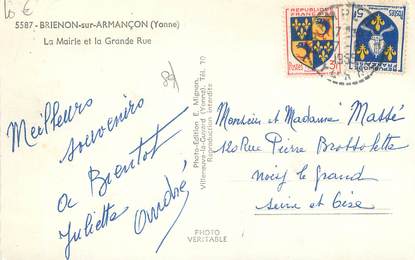 10 €
5587 - BRIENON-sur-ARMANÇON (Yonne)
La Mairie et la Grande Rue
89
Meilleurs
souvenirs
a Bientot
Juliette André
Photo-Edition E. Mignon
Villeneuve-la-Guyard (Yonne). Tél. 10
Reproduction interdite
PHOTO
VERITABLE
REPUBLIQUE FRANÇAISE
POSTES
Monsieur et Madame Massé
120 Rue Pierre Brossolette
Noisy le grand
Seine et Oise